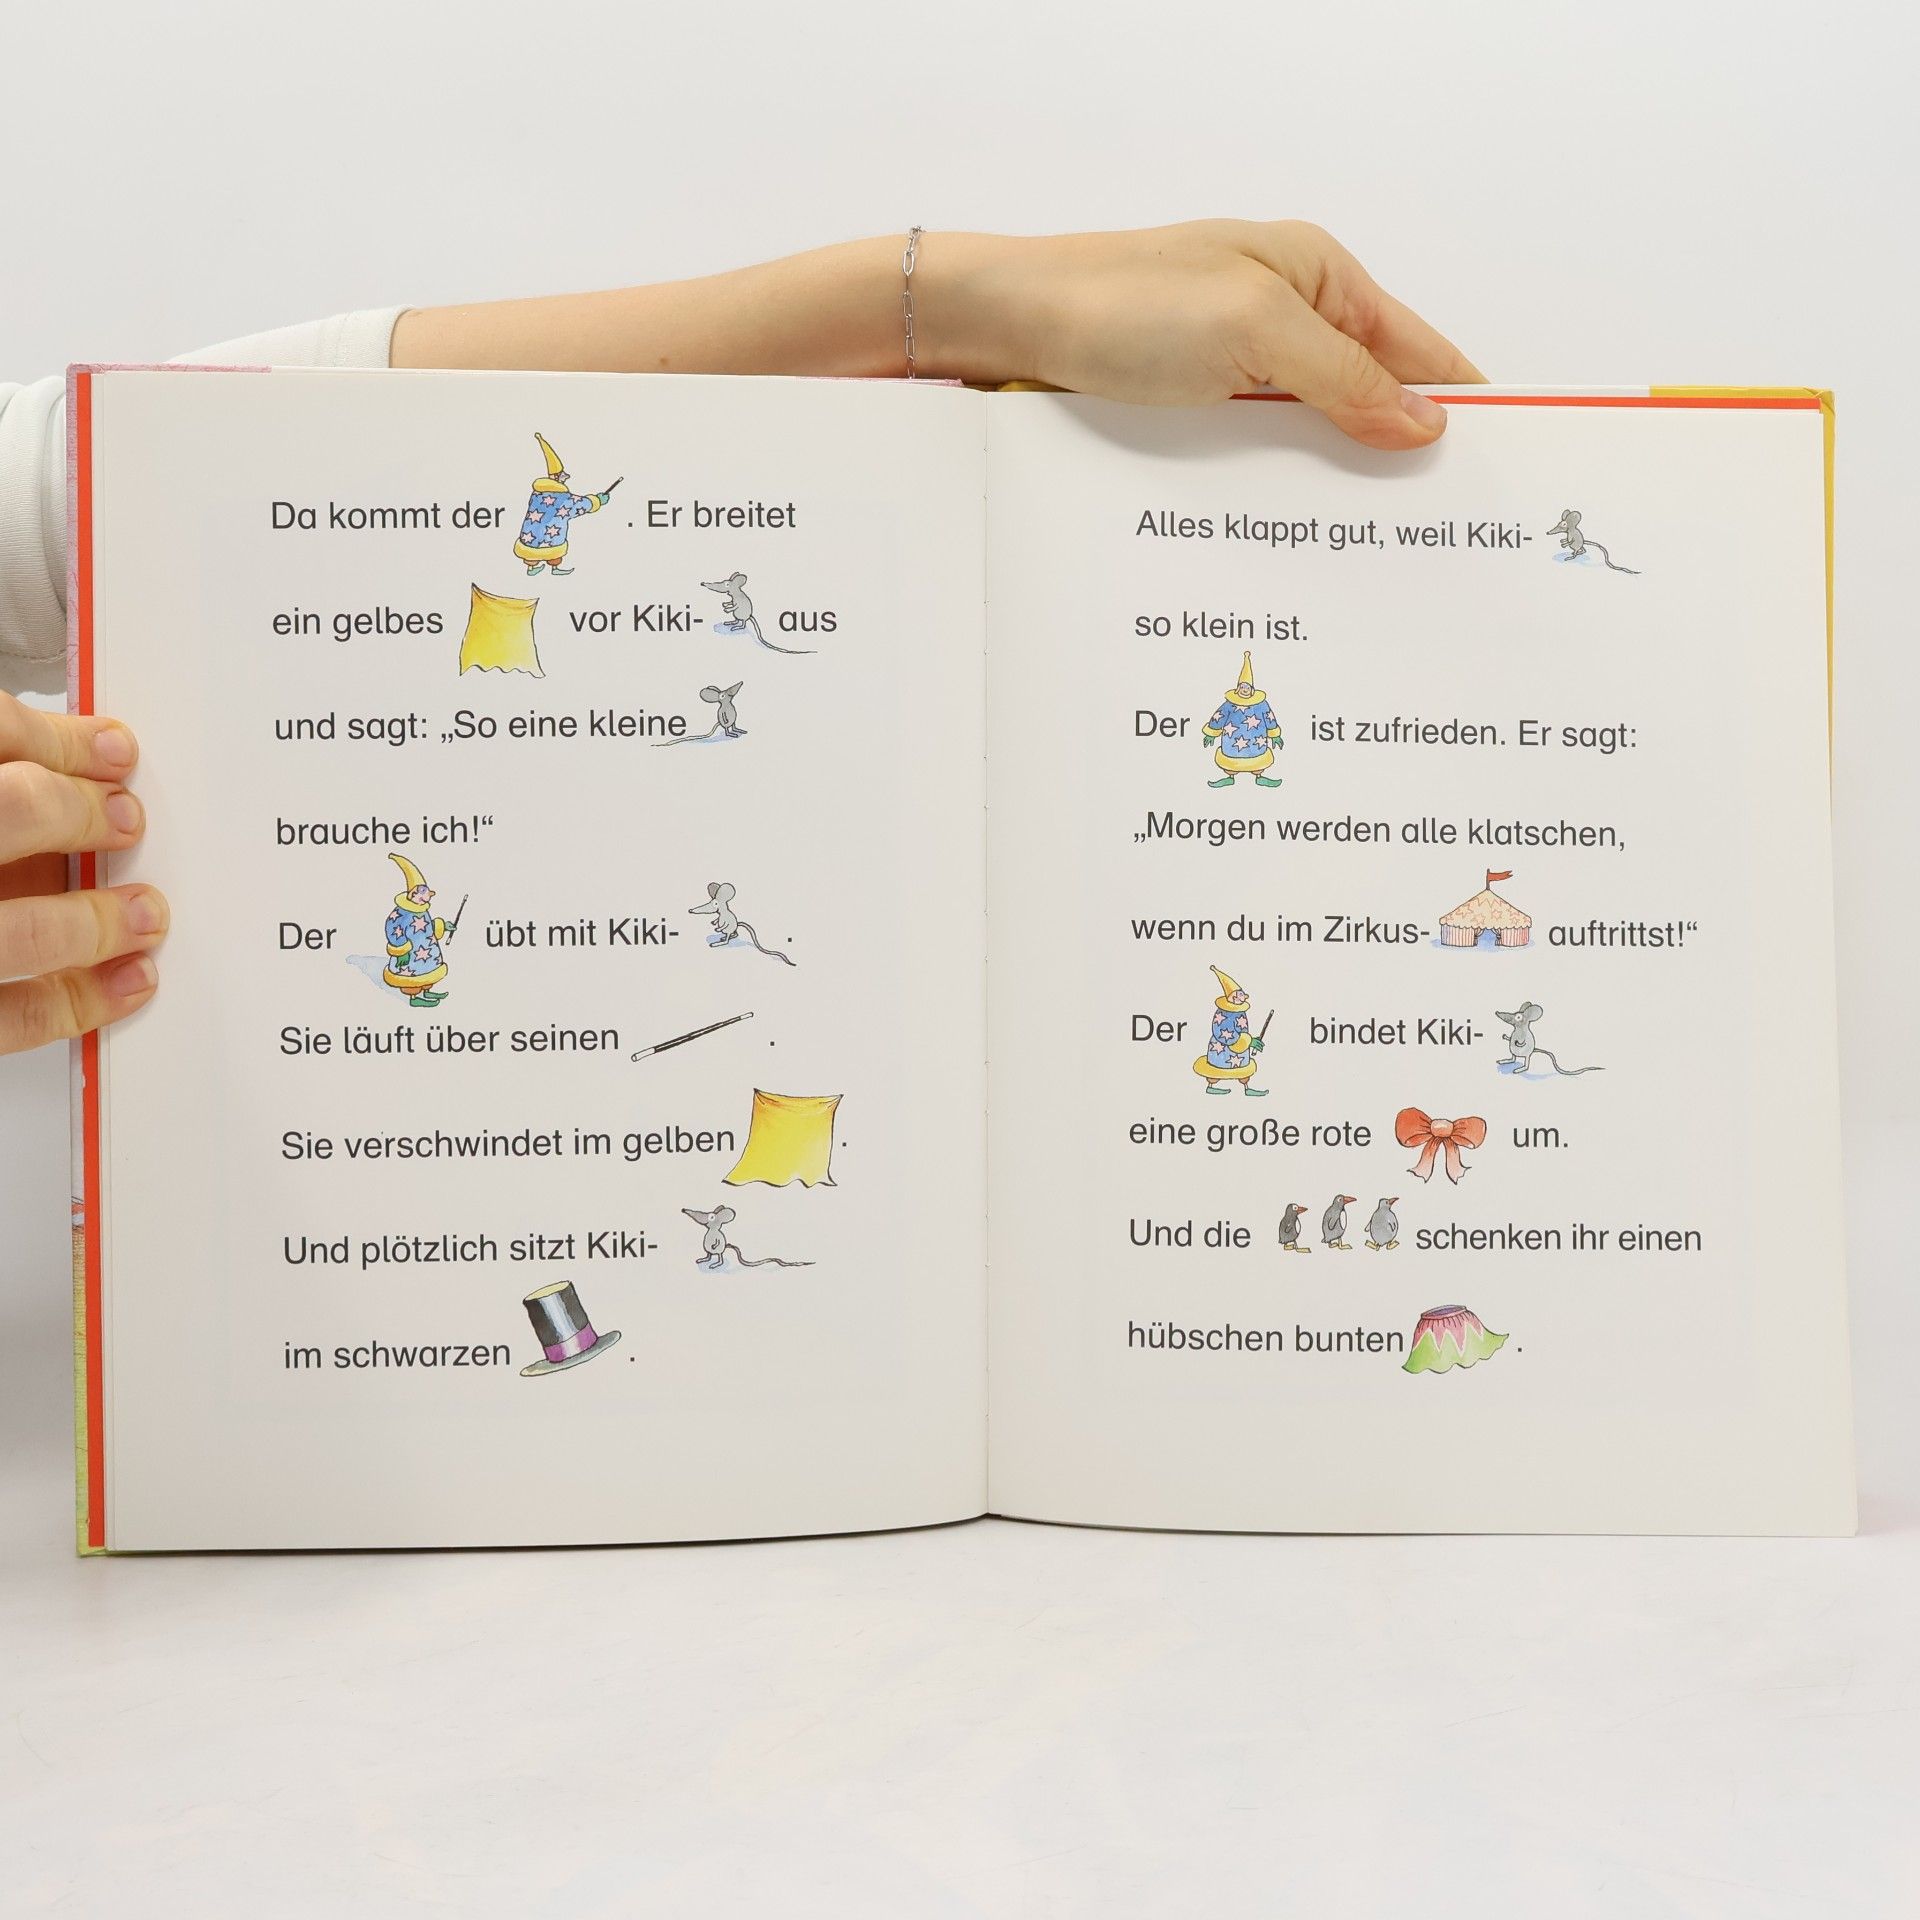 Da kommt der . Er breitet
ein gelbes vor Kiki- aus
und sagt: „So eine kleine
brauche ich!“
Der übt mit Kiki- .
Sie läuft über seinen .
Sie verschwindet im gelben .
Und plötzlich sitzt Kiki-
im schwarzen .
Alles klappt gut, weil Kiki-
so klein ist.
Der ist zufrieden. Er sagt:
„Morgen werden alle klatschen,
wenn du im Zirkus- auftrittst!“
Der bindet Kiki-
eine große rote um.
Und die schenken ihr einen
hübschen bunten .